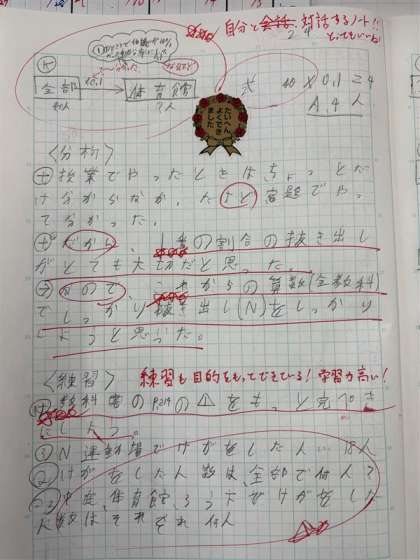 自分と対話するノート!!
とってもいいね!
全部
×0.1
体育館
40人
?人
式 40×0.1=4
A 4人
たいへん
よくでき
ました
<分析>
授業でやったときはちょっとだ
け分からなか
たけど
宿題でや
て分かった。
だから、
の割合の抜き出し
がとても大
だと思った。
なので、これからの算数(全教科)
でしっかり抜き出し(N)をしっかり
しようと思った。
<練習>
練習も目的をもってできている!学習力高い!
教科書のP214の△をもっと完ぺき
にしたい。
①N 運動場でけがをした人…18人
②けがをした人数は、全部で何人?
体育館、ろう下でけがをした
人数はそれぞれ何人